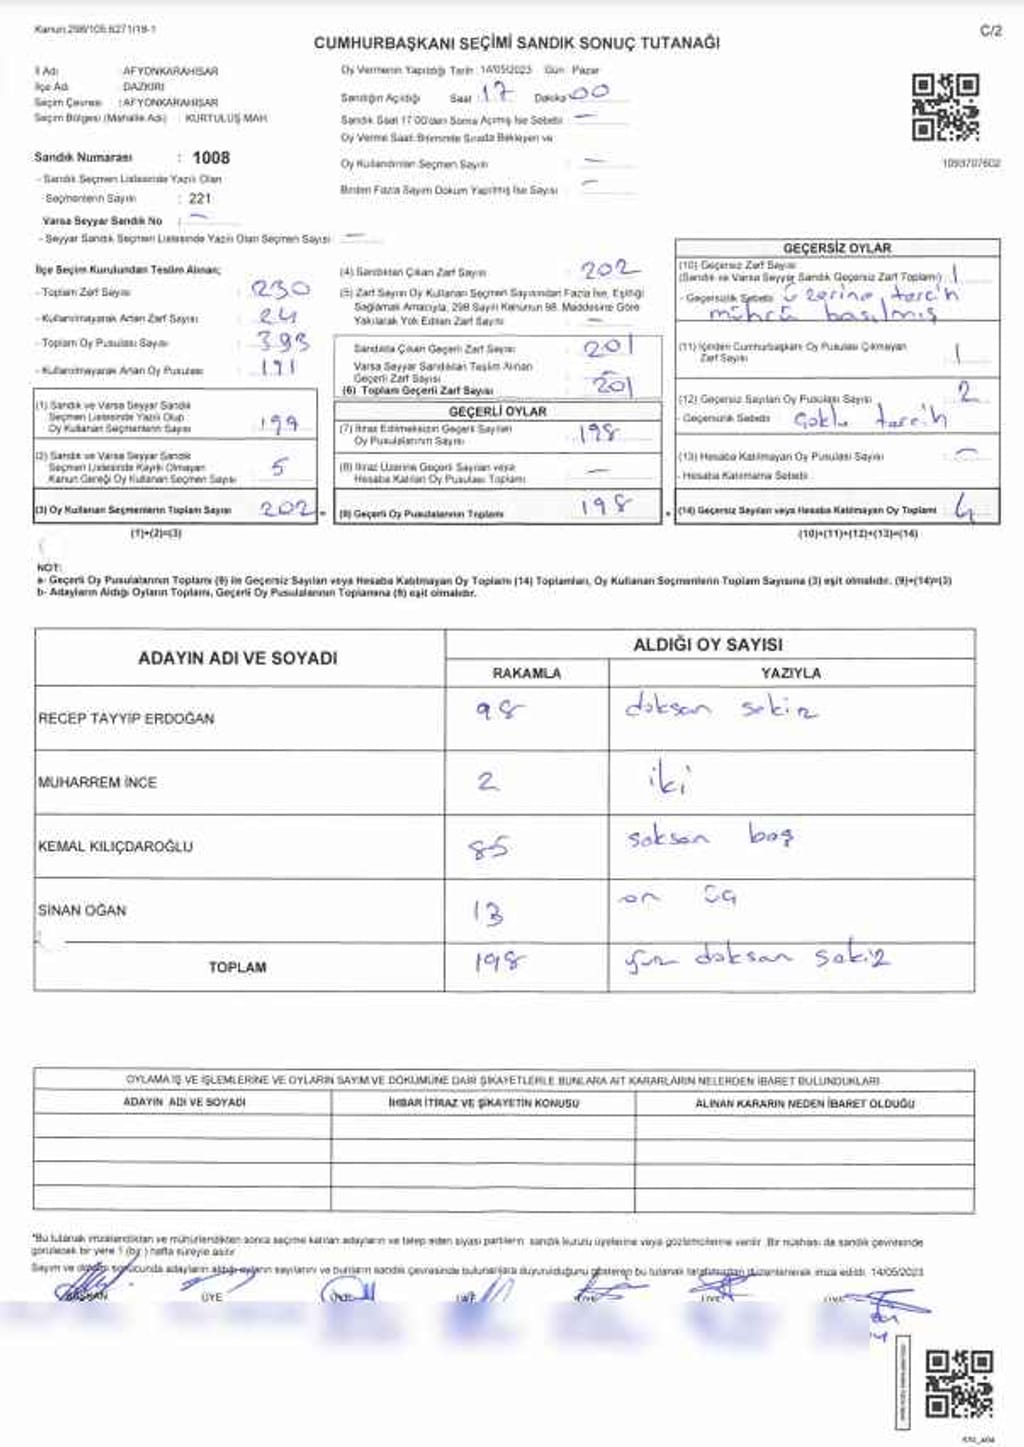 Kanun:298/105.6271/19-1
C/2
CUMHURBAŞKANI SEÇİMİ SANDIK SONUÇ TUTANAĞI
İl Adı : AFYONKARAHİSAR
İlçe Adı : DAZKIRI
Seçim Çevresi : AFYONKARAHİSAR
Seçim Bölgesi (Mahalle Adı) : KURTULUŞ MAH.
Sandık Numarası : 1008
- Sandık Seçmen Listesinde Yazılı Olan
Seçmenlerin Sayısı : 221
Varsa Seyyar Sandık No : —
- Seyyar Sandık Seçmen Listesinde Yazılı Olan Seçmen Sayısı : —
Oy Vermenin Yapıldığı Tarih : 14/05/2023 Gün : Pazar
Sandığın Açıldığı Saat : 17 Dakika : 00
Sandık Saat 17:00'dan Sonra Açılmış İse Sebebi : —
Oy Verme Saati Bitiminde Sırada Bekleyen ve
Oy Kullandırılan Seçmen Sayısı : —
Birden Fazla Sayım Döküm Yapılmış İse Sayısı : —
1093707602
İlçe Seçim Kurulundan Teslim Alınan;
- Toplam Zarf Sayısı : 230
- Kullanılmayarak Artan Zarf Sayısı : 24
- Toplam Oy Pusulası Sayısı : 393
- Kullanılmayarak Artan Oy Pusulası : 191
(1) Sandık ve Varsa Seyyar Sandık
Seçmen Listesinde Yazılı Olup
Oy Kullanan Seçmenlerin Sayısı : 199
(2) Sandık ve Varsa Seyyar Sandık
Seçmen Listesinde Kayıtlı Olmayan
Kanun Gereği Oy Kullanan Seçmen Sayısı : 5
(3) Oy Kullanan Seçmenlerin Toplam Sayısı : 202 =
(1)+(2)=(3)
(4) Sandıktan Çıkan Zarf Sayısı : 202
(5) Zarf Sayısı Oy Kullanan Seçmen Sayısından Fazla İse, Eşitliği
Sağlamak Amacıyla, 298 Sayılı Kanunun 98. Maddesine Göre
Yakılarak Yok Edilen Zarf Sayısı : —
Sandıkta Çıkan Geçerli Zarf Sayısı : 201
Varsa Seyyar Sandıktan Teslim Alınan
Geçerli Zarf Sayısı : —
(6) Toplam Geçerli Zarf Sayısı : 201
GEÇERLİ OYLAR
(7) İtiraz Edilmeksizin Geçerli Sayılan
Oy Pusulalarının Sayısı : 198
(8) İtiraz Üzerine Geçerli Sayılan veya
Hesaba Katılan Oy Pusulası Toplamı : —
(9) Geçerli Oy Pusulalarının Toplamı : 198 +
GEÇERSİZ OYLAR
(10) Geçersiz Zarf Sayısı
(Sandık ve Varsa Seyyar Sandık Geçersiz Zarf Toplamı) : 1
- Geçersizlik Sebebi : üzerine tercih
mührü basılmış
(11) İçinden Cumhurbaşkanı Oy Pusulası Çıkmayan
Zarf Sayısı : 1
(12) Geçersiz Sayılan Oy Pusulası Sayısı : 2
- Geçersizlik Sebebi : Çoklu tercih
(13) Hesaba Katılmayan Oy Pusulası Sayısı : —
- Hesaba Katılmama Sebebi :
(14) Geçersiz Sayılan veya Hesaba Katılmayan Oy Toplamı : 4
(10)+(11)+(12)+(13)=(14)
NOT:
a- Geçerli Oy Pusulalarının Toplamı (9) ile Geçersiz Sayılan veya Hesaba Katılmayan Oy Toplamı (14) Toplamları, Oy Kullanan Seçmenlerin Toplam Sayısına (3) eşit olmalıdır. (9)+(14)=(3)
b- Adayların Aldığı Oyların Toplamı, Geçerli Oy Pusulalarının Toplamına (9) eşit olmalıdır.
ADAYIN ADI VE SOYADI
ALDIĞI OY SAYISI
RAKAMLA YAZIYLA
RECEP TAYYİP ERDOĞAN 98 doksan sekiz
MUHARREM İNCE 2 iki
KEMAL KILIÇDAROĞLU 85 seksen beş
SİNAN OĞAN 13 on üç
TOPLAM 198 yüz doksan sekiz
OYLAMA İŞ VE İŞLEMLERİNE VE OYLARIN SAYIM VE DÖKÜMÜNE DAİR ŞİKAYETLERLE BUNLARA AİT KARARLARIN NELERDEN İBARET BULUNDUKLARI
ADAYIN ADI VE SOYADI İHBAR İTİRAZ VE ŞİKAYETİN KONUSU ALINAN KARARIN NEDEN İBARET OLDUĞU
*Bu tutanak imzalandıktan ve mühürlendikten sonra seçime katılan adayların ve talep eden siyasi partilerin sandık kurulu üyelerine veya gözlemcilerine verilir. Bir nüshası da sandık çevresinde
görülecek bir yere 1 (bir) hafta süreyle asılır.
Sayım ve döküm sonucunda adayların aldığı oyların sayılarını ve bunların sandık çevresinde bulunanlara duyurulduğunu gösteren bu tutanak tarafımızdan düzenlenerek imza edildi. 14/05/2023
BAŞKAN ÜYE ÜYE ÜYE ÜYE ÜYE ÜYE